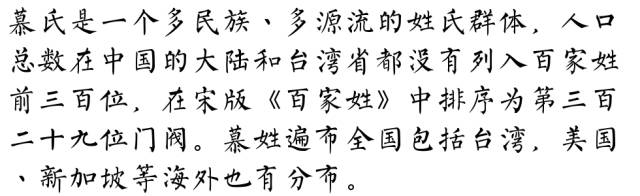 慕氏是一个多民族、多源流的姓氏群体，人口
总数在中国的大陆和台湾省都没有列入百家姓
前三百位，在宋版《百家姓》中排序为第三百
二十九位门阀。慕姓遍布全国包括台湾，美国
、新加坡等海外也有分布。